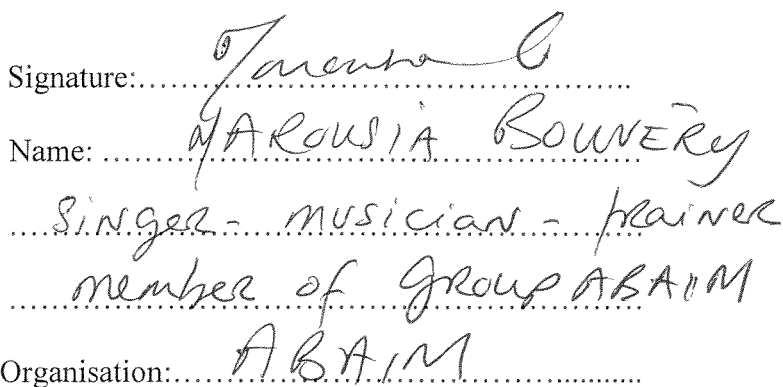 Signature:
Name: MAROUSIA BOUVERY
Singer - musician - trainer
member of GROUP ABAIM
Organisation: ABAIM